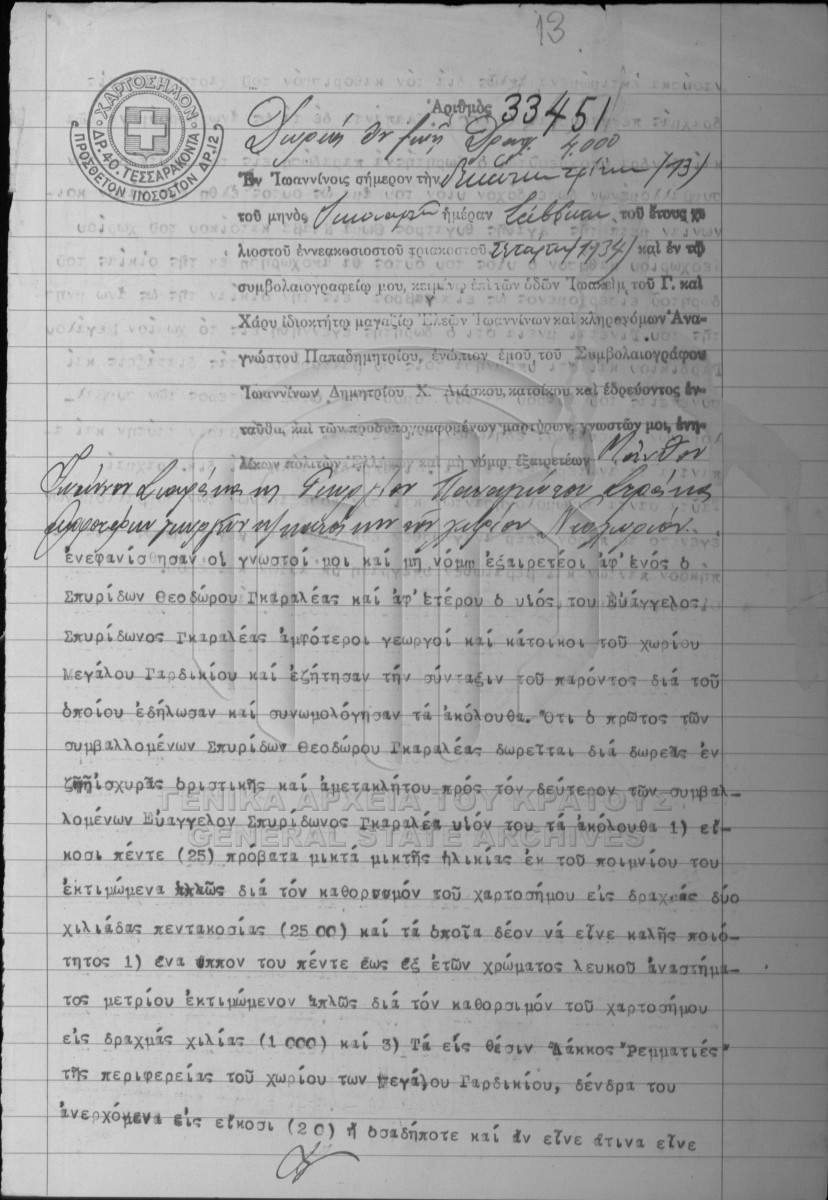 13
ΧΑΡΤΟΣΗΜΟΝ
ΔΡ.40.ΤΕΣΣΑΡΑΚΟΝΤΑ
ΠΡΟΣΘΕΤΟΝ ΠΟΣΟΣΤΟΝ ΔΡ.12
Ἀριθμὸς 33451
Δωρεὰ ἐν ζωῇ Δραχ. 4.000
Ἐν Ἰωαννίνοις σήμερον τὴν δεκάτην τρίτην (13)
τοῦ μηνὸς Ἰανουαρίου ἡμέραν Σάββατον τοῦ ἔτους χι
λιοστοῦ ἐννεακοσιοστοῦ τριακοστοῦ τετάρτου (1934) καὶ ἐν τῷ
συμβολαιογραφείῳ μου, κειμένῳ ἐπὶ τῶν ὁδῶν Ἰωακεὶμ τοῦ Γ. καὶ
Χάρυ ἰδιοκτήτῳ μαγαζίῳ Ἐλεῶν Ἰωαννίνων καὶ κληρονόμων Ἀνα-
γνώστου Παπαδημητρίου, ἐνώπιον ἐμοῦ τοῦ Συμβολαιογράφου
Ἰωαννίνων Δημητρίου Χ. Λιάσκου, κατοίκου καὶ ἑδρεύοντος ἐν-
ταῦθα, καὶ τῶν προσυπογραφομένων μαρτύρων, γνωστῶν μοι, ἐνη-
λίκων πολιτῶν Ἑλλήνων καὶ μὴ νόμῳ ἐξαιρετέων
Ἰωάννου καὶ Γεωργίου Παναγιώτου
ἀμφοτέρων γεωργῶν κατοίκων τοῦ χωρίου
ἐνεφανίσθησαν οἱ γνωστοί μοι καί μή νόμῳ ἐξαιρετέοι ἀφ' ἑνός ὁ
Σπυρίδων Θεοδώρου Γκαραλέας καί ἀφ' ἑτέρου ὁ υἱός του Εὐάγγελος
Σπυρίδωνος Γκαραλέας ἀμφότεροι γεωργοί καί κάτοικοι τοῦ χωρίου
Μεγάλου Γαρδικίου καί ἐζήτησαν τήν σύνταξιν τοῦ παρόντος διά τοῦ
ὁποίου ἐδήλωσαν καί συνωμολόγησαν τά ἀκόλουθα. Ὅτι ὁ πρῶτος τῶν
συμβαλλομένων Σπυρίδων Θεοδώρου Γκαραλέας δωρεῖται διά δωρεᾶς ἐν
ζωῇ ἰσχυρᾶς ὁριστικῆς καί ἀμετακλήτου πρός τόν δεύτερον τῶν συμβαλ-
ΓΕΝΙΚΑ ΑΡΧΕΙΑ ΤΟΥ ΚΡΑΤΟΥΣ
GENERAL STATE ARCHIVES
λομένων Εὐάγγελον Σπυρίδωνος Γκαραλέα υἱόν του τά ἀκόλουθα 1) εἴ-
κοσι πέντε (25) πρόβατα μικτά μικτῆς ἡλικίας ἐκ τοῦ ποιμνίου του
ἐκτιμώμενα ἁπλῶς διά τόν καθορισμόν τοῦ χαρτοσήμου εἰς δραχμάς δύο
χιλιάδας πεντακοσίας (2500) καί τά ὁποῖα δέον νά εἶνε καλῆς ποιό-
τητος 1) ἕνα ἵππον του πέντε ἕως ἕξ ἐτῶν χρώματος λευκοῦ ἀναστήμα-
τος μετρίου ἐκτιμώμενον ἁπλῶς διά τόν καθορσιμόν τοῦ χαρτοσήμου
εἰς δραχμάς χιλίας (1000) καί 3) Τά εἰς θέσιν "Λάκκος Ῥεμματιές"
τῆς περιφερείας τοῦ χωρίου των Μεγάλου Γαρδικίου, δένδρα του
ἀνερχόμενα εἰς εἴκοσι (20) ἤ ὁσαδήποτε καί ἄν εἶνε ἅτινα εἶνε